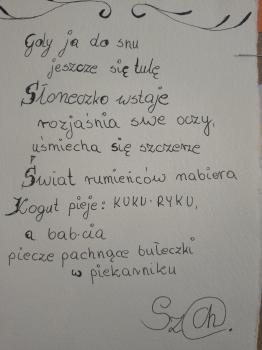 Gdy ja do snu
jeszcze się tulę
Słoneczko wstaje
rozjaśnia swe oczy,
uśmiecha się szczerze
Świat rumieńców nabiera
Kogut pieje: KUKU-RYKU,
a bab-cia
piecze pachnące bułeczki
w piekarniku
SzCh.